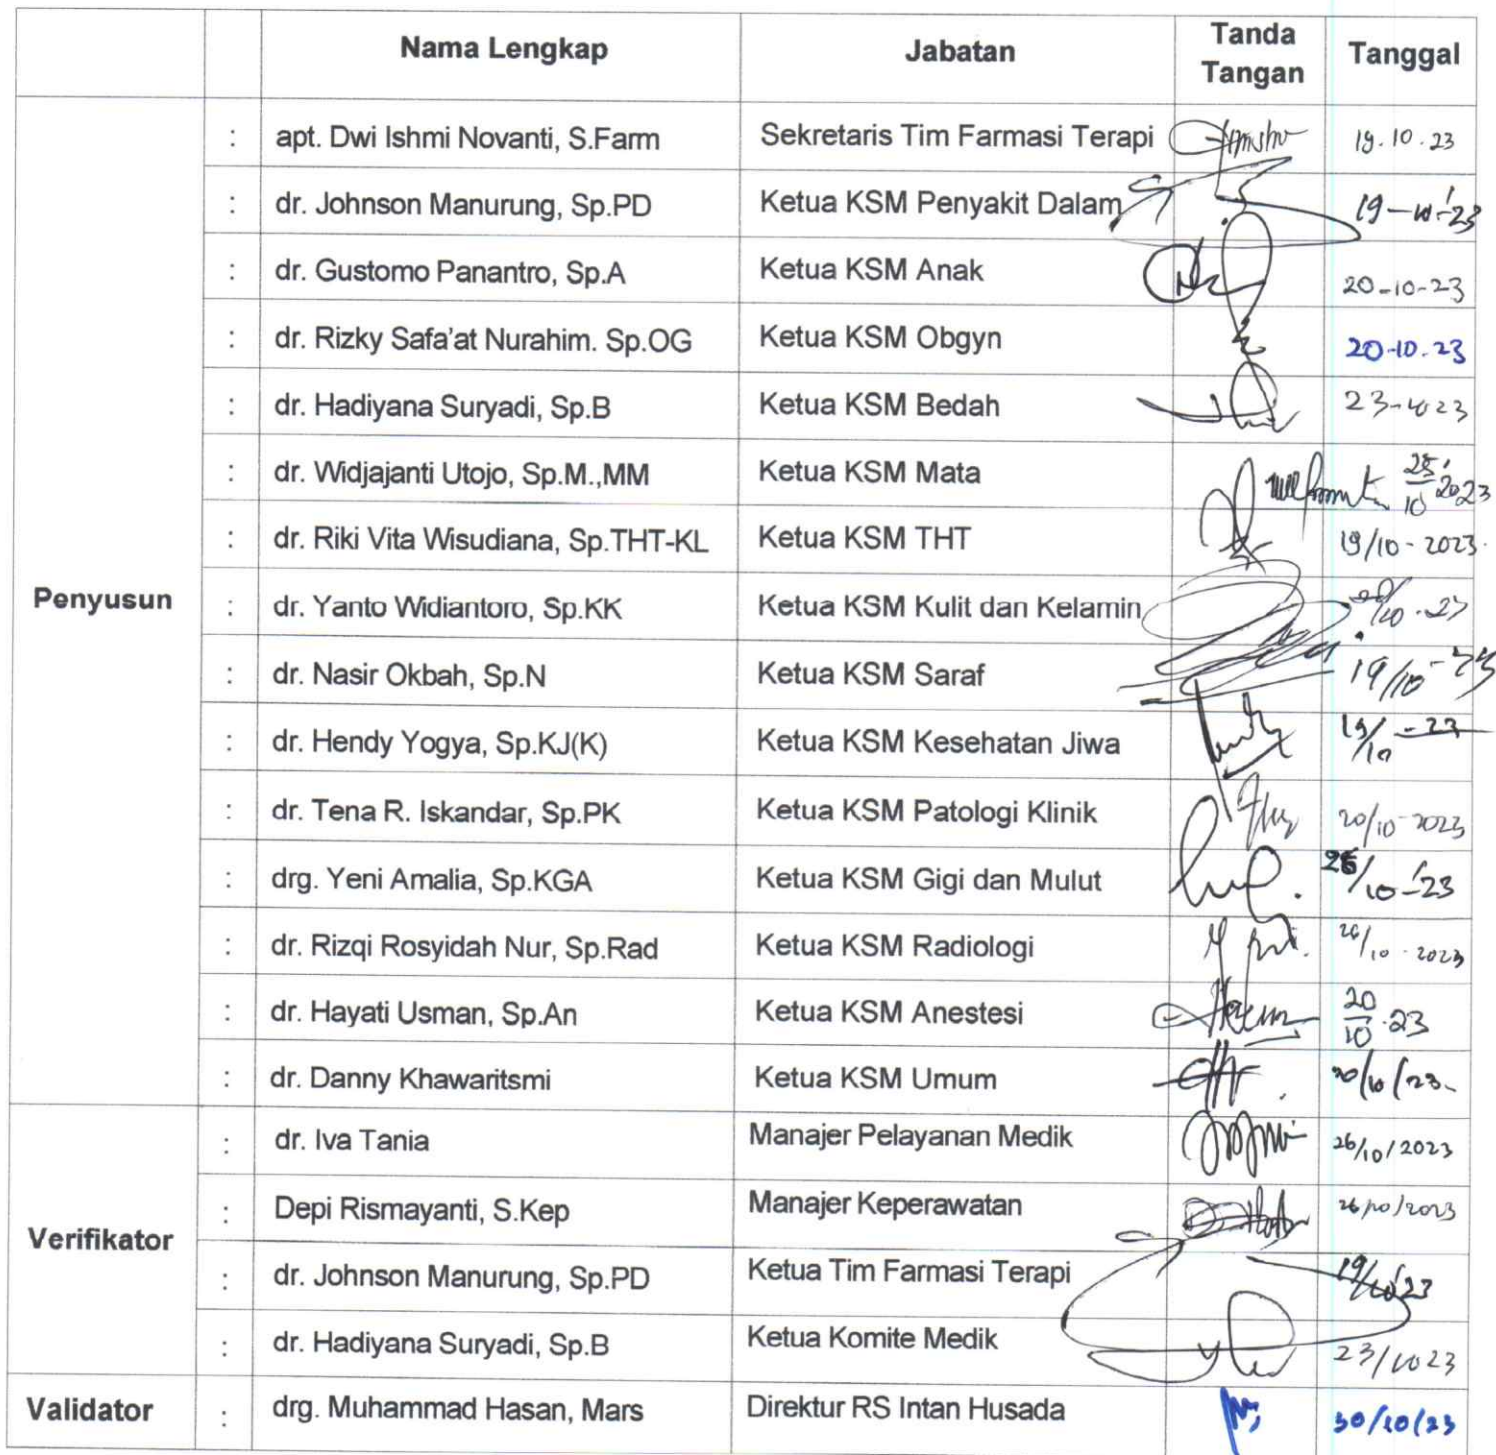 Nama Lengkap Jabatan Tanda Tangan Tanggal
Penyusun
: apt. Dwi Ishmi Novanti, S.Farm Sekretaris Tim Farmasi Terapi 19.10.23
: dr. Johnson Manurung, Sp.PD Ketua KSM Penyakit Dalam 19-10-'23
: dr. Gustomo Panantro, Sp.A Ketua KSM Anak 20-10-23
: dr. Rizky Safa'at Nurahim. Sp.OG Ketua KSM Obgyn 20-10.23
: dr. Hadiyana Suryadi, Sp.B Ketua KSM Bedah 23-1023
: dr. Widjajanti Utojo, Sp.M.,MM Ketua KSM Mata
: dr. Riki Vita Wisudiana, Sp.THT-KL Ketua KSM THT 19/10-2023.
: dr. Yanto Widiantoro, Sp.KK Ketua KSM Kulit dan Kelamin
: dr. Nasir Okbah, Sp.N Ketua KSM Saraf 19/10-23
: dr. Hendy Yogya, Sp.KJ(K) Ketua KSM Kesehatan Jiwa 19/10-23
: dr. Tena R. Iskandar, Sp.PK Ketua KSM Patologi Klinik 20/10-2023
: drg. Yeni Amalia, Sp.KGA Ketua KSM Gigi dan Mulut
: dr. Rizqi Rosyidah Nur, Sp.Rad Ketua KSM Radiologi
: dr. Hayati Usman, Sp.An Ketua KSM Anestesi 20/10.23
: dr. Danny Khawaritsmi Ketua KSM Umum 20/10/23-
Verifikator
: dr. Iva Tania Manajer Pelayanan Medik 26/10/2023
: Depi Rismayanti, S.Kep Manajer Keperawatan 26/10/2023
: dr. Johnson Manurung, Sp.PD Ketua Tim Farmasi Terapi 19/10'23
: dr. Hadiyana Suryadi, Sp.B Ketua Komite Medik 23/1023
Validator : drg. Muhammad Hasan, Mars Direktur RS Intan Husada 30/10/23